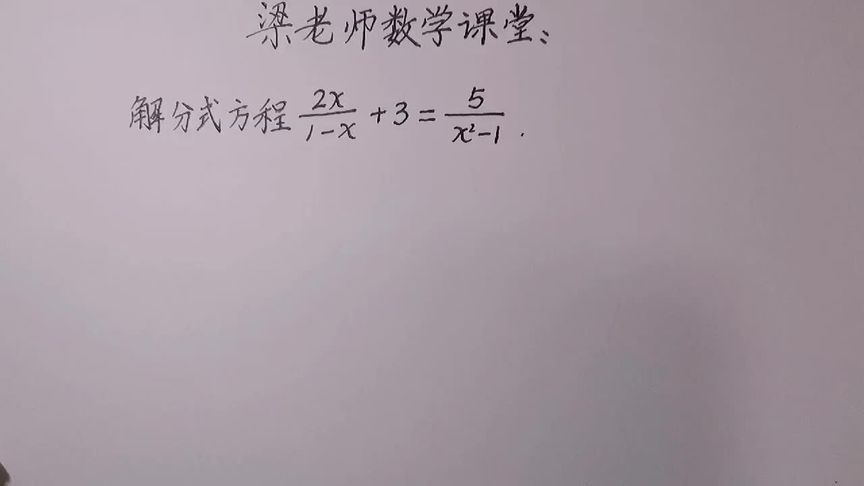 梁老师数学课堂:
解分式方程 \frac{2x}{1-x} + 3 = \frac{5}{x^2-1}.